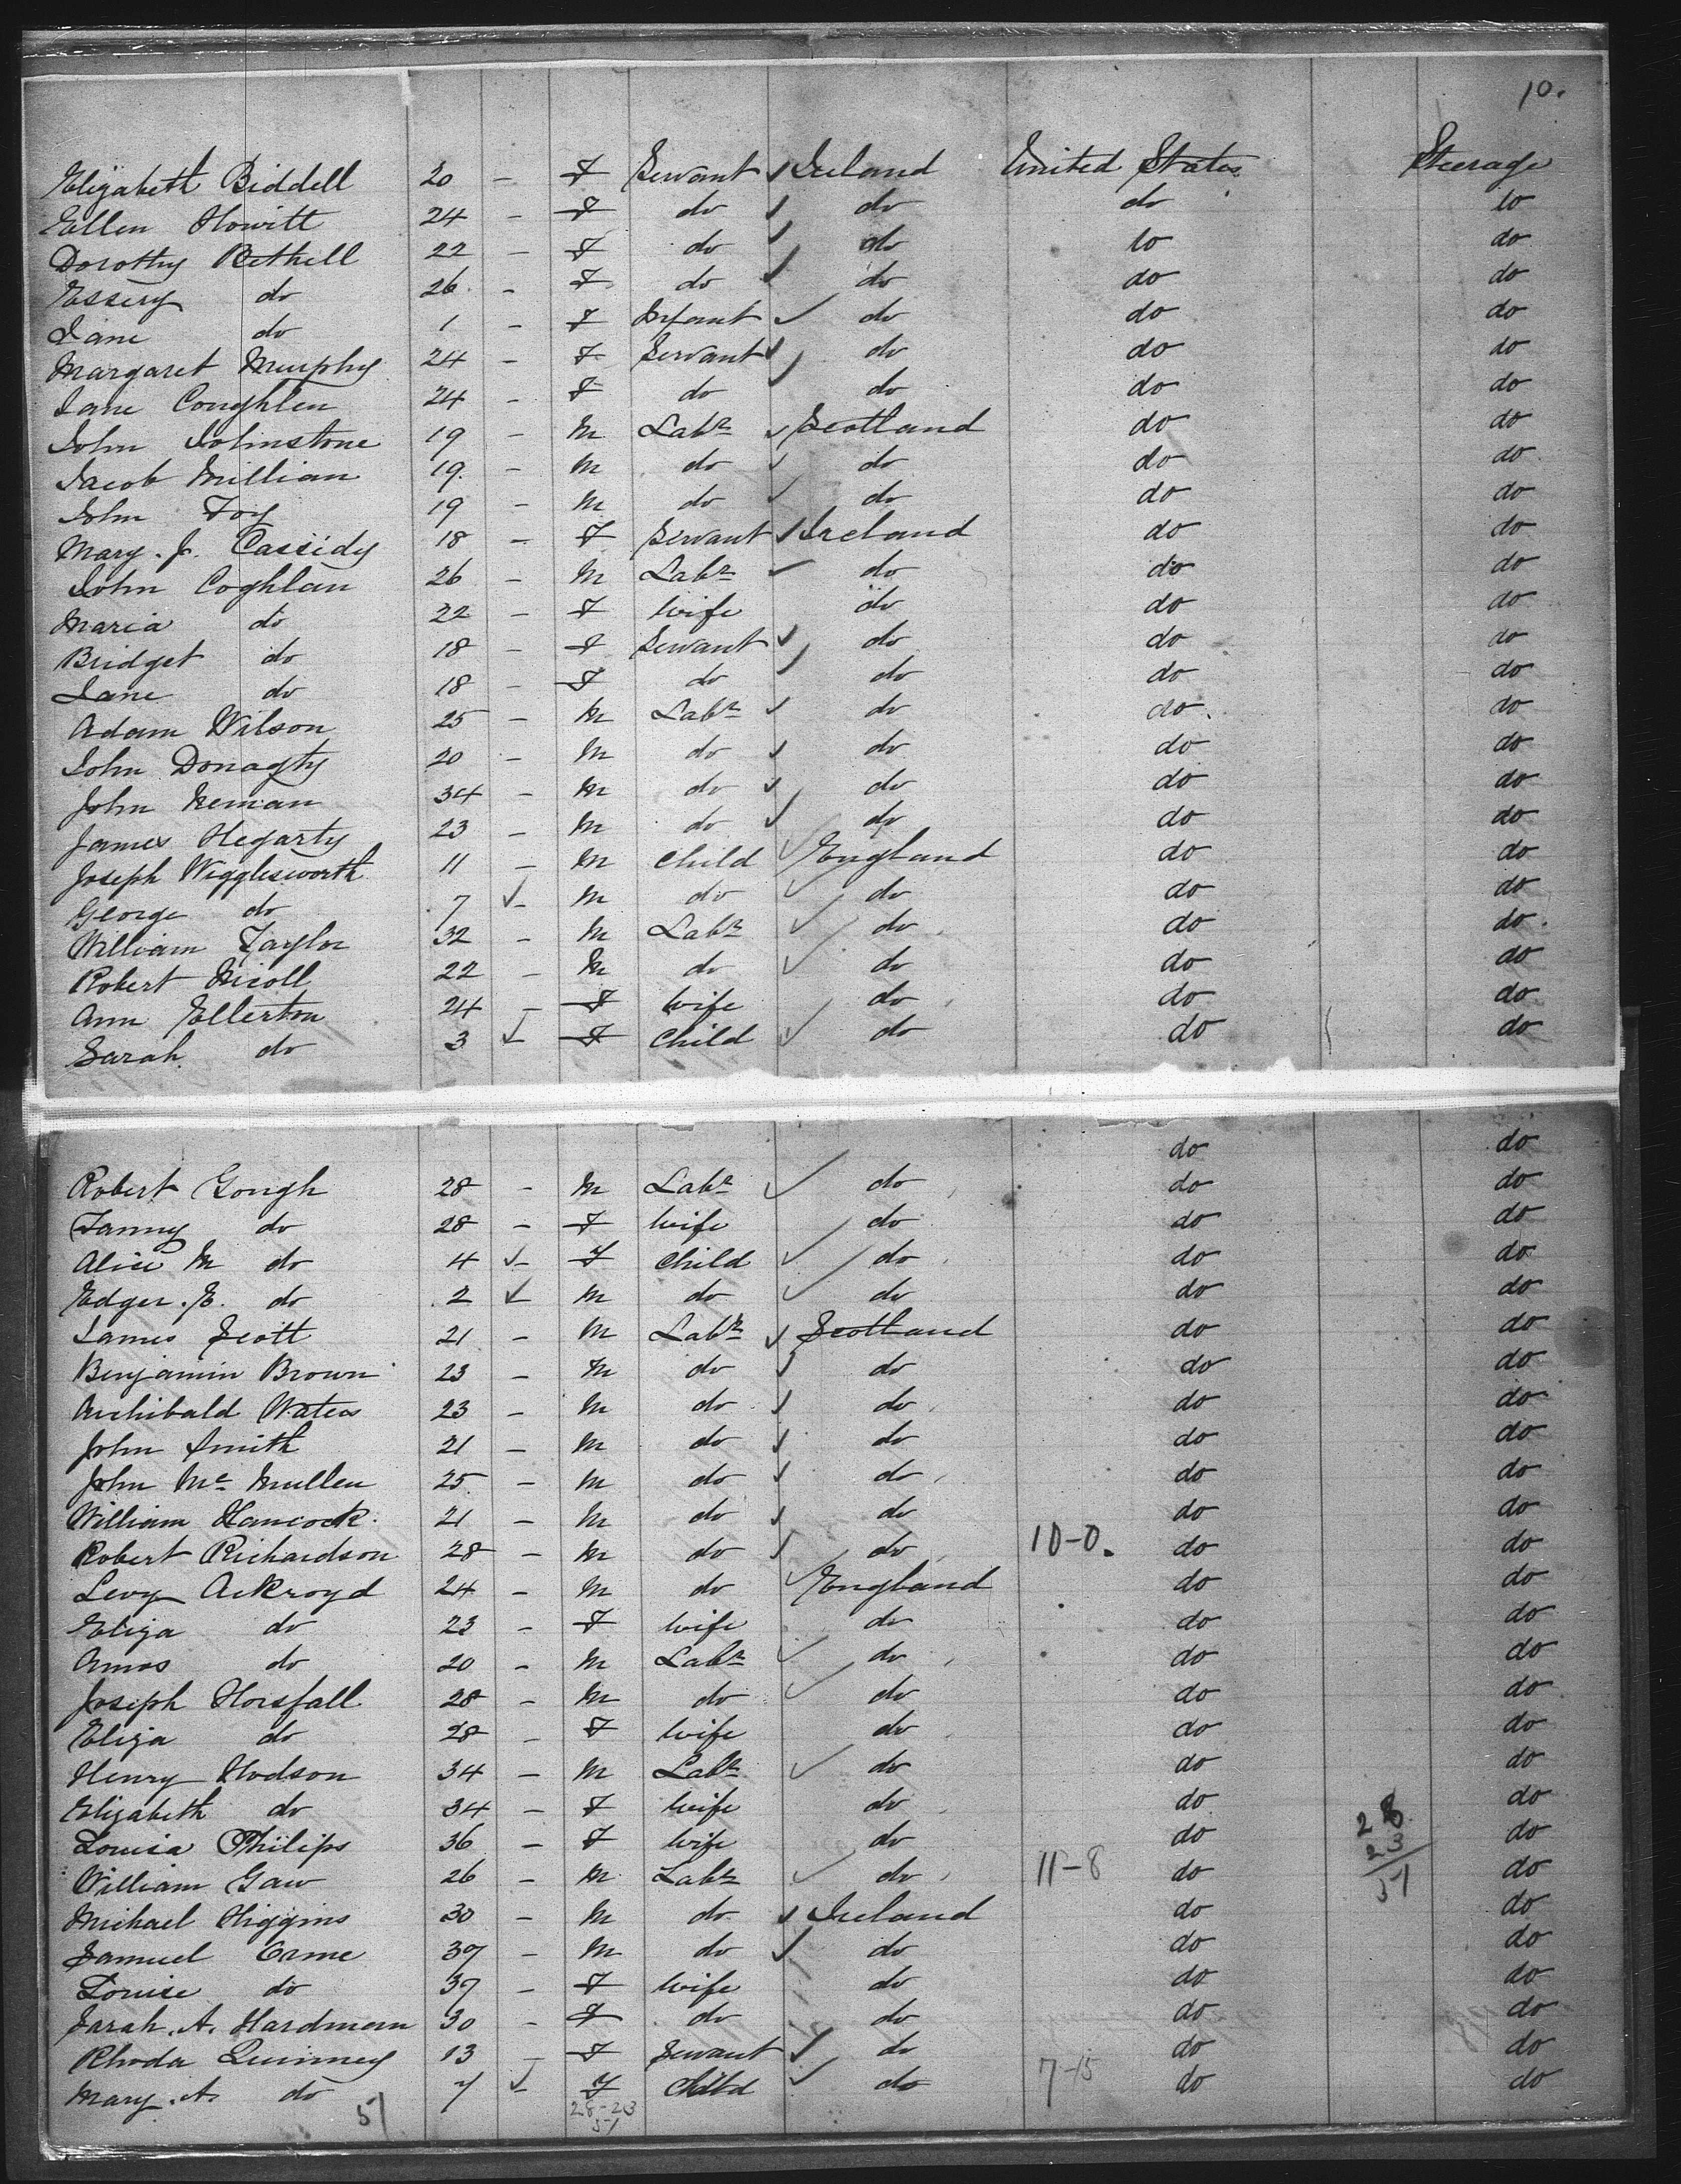 10.
Elizabeth Biddell 20 - F Servant ✓ Ireland United States Steerage
Ellen Howitt 24 - F do ✓ do do do
Dorothy Bethell 22 - F do ✓ do do do
Essery do 26 - F do ✓ do do do
Jane do 1 - F Infant ✓ do do do
Margaret Murphy 24 - F Servant ✓ do do do
Jane Coughlen 24 - F do ✓ do do do
John Johnstone 19 - M Labr ✓ Scotland do do
Jacob Millian 19 - M do ✓ do do do
John Foy 19 - M do ✓ do do do
Mary. J. Cassidy 18 - F Servant ✓ Ireland do do
John Coghlan 26 - M Labr ✓ do do do
Maria do 22 - F wife do do do
Bridget do 18 - F Servant ✓ do do do
Jane do 18 - F do ✓ do do do
Adam Wilson 25 - M Labr ✓ do do do
John Donaghy 20 - M do ✓ do do do
John Neman 34 - M do ✓ do do do
James Hegarty 23 - M do ✓ do do do
Joseph Wigglesworth 11 - M child ✓ England do do
George do 7 ✓ - M do ✓ do do do
William Taylor 32 - M Labr ✓ do do do
Robert Nicoll 22 - M do ✓ do do do
Ann Ellerton 24 - F wife do do do
Sarah do 3 ✓ - F Child ✓ do do do
do do
Robert Gough 28 - M Labr ✓ do do do
Fanny do 28 - F wife do do do
Alice M do 4 ✓ - F child ✓ do do do
Edger. E. do 2 ✓ - M do ✓ do do do
James Scott 21 - M Labr ✓ Scotland do do
Benjamin Brown 23 - M do ✓ do do do
Archibald Waters 23 - M do ✓ do do do
John Smith 21 - M do ✓ do do do
John Mc Mullen 25 - M do ✓ do do do
William Hancock 21 - M do ✓ do do do
Robert Richardson 28 - M do ✓ do 10-0. do do
Levy Ackroyd 24 - M do ✓ England do do
Eliza do 23 - F wife do do do
Amos do 20 - M Labr ✓ do do do
Joseph Horsfall 28 - M do ✓ do do do
Eliza do 28 - F wife do do do
Henry Hodson 34 - M Labr ✓ do do do
Elizabeth do 34 - F wife do do 28 do
Louisa Philips 36 - F wife do do 23 do
William Gaw 26 - M Labr ✓ do 11-8 do 51 do
Michael Higgins 30 - M do ✓ Ireland do do
Samuel Orme 37 - M do ✓ do do do
Louise do 37 - F wife do do do
Sarah. A. Hardmom 30 - F do do do do
Rhoda Quinney 13 - F Servant ✓ do do do
Mary. A. do 7 ✓ - F Child ✓ do 7-15 do do
51 28-23
51